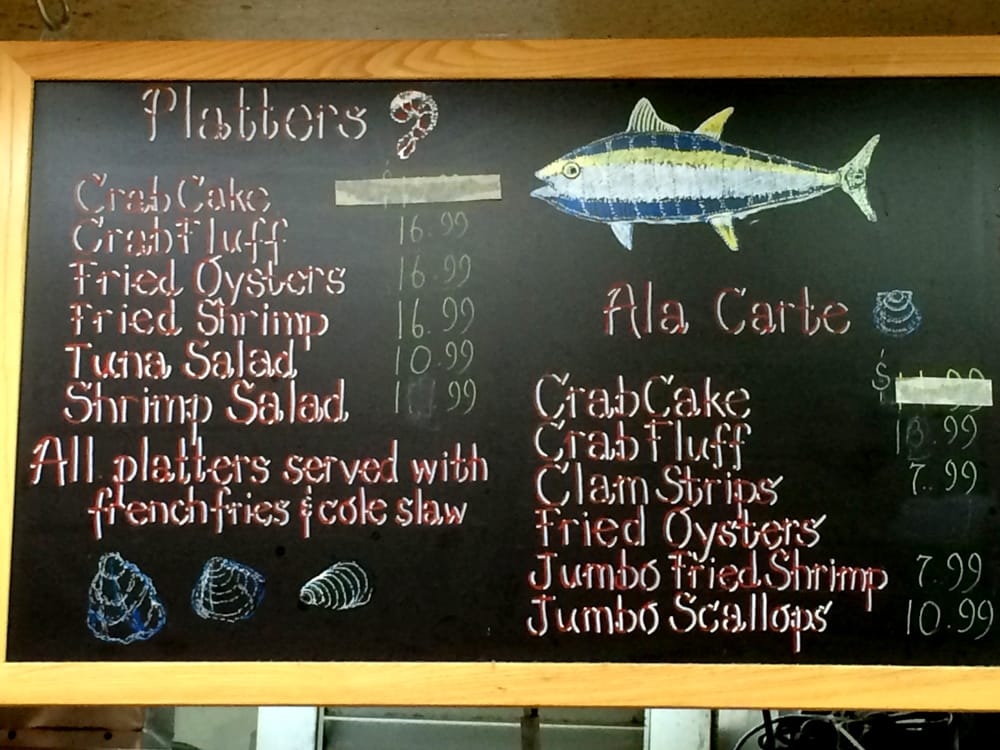 Platters
Crab Cake
Crab Fluff 16.99
Fried Oysters 16.99
Fried Shrimp 16.99
Tuna Salad 10.99
Shrimp Salad
All platters served with
french fries & cole slaw
Ala Carte
$
Crab Cake
Crab Fluff 13.99
Clam Strips 7.99
Fried Oysters
Jumbo Fried Shrimp 7.99
Jumbo Scallops 10.99